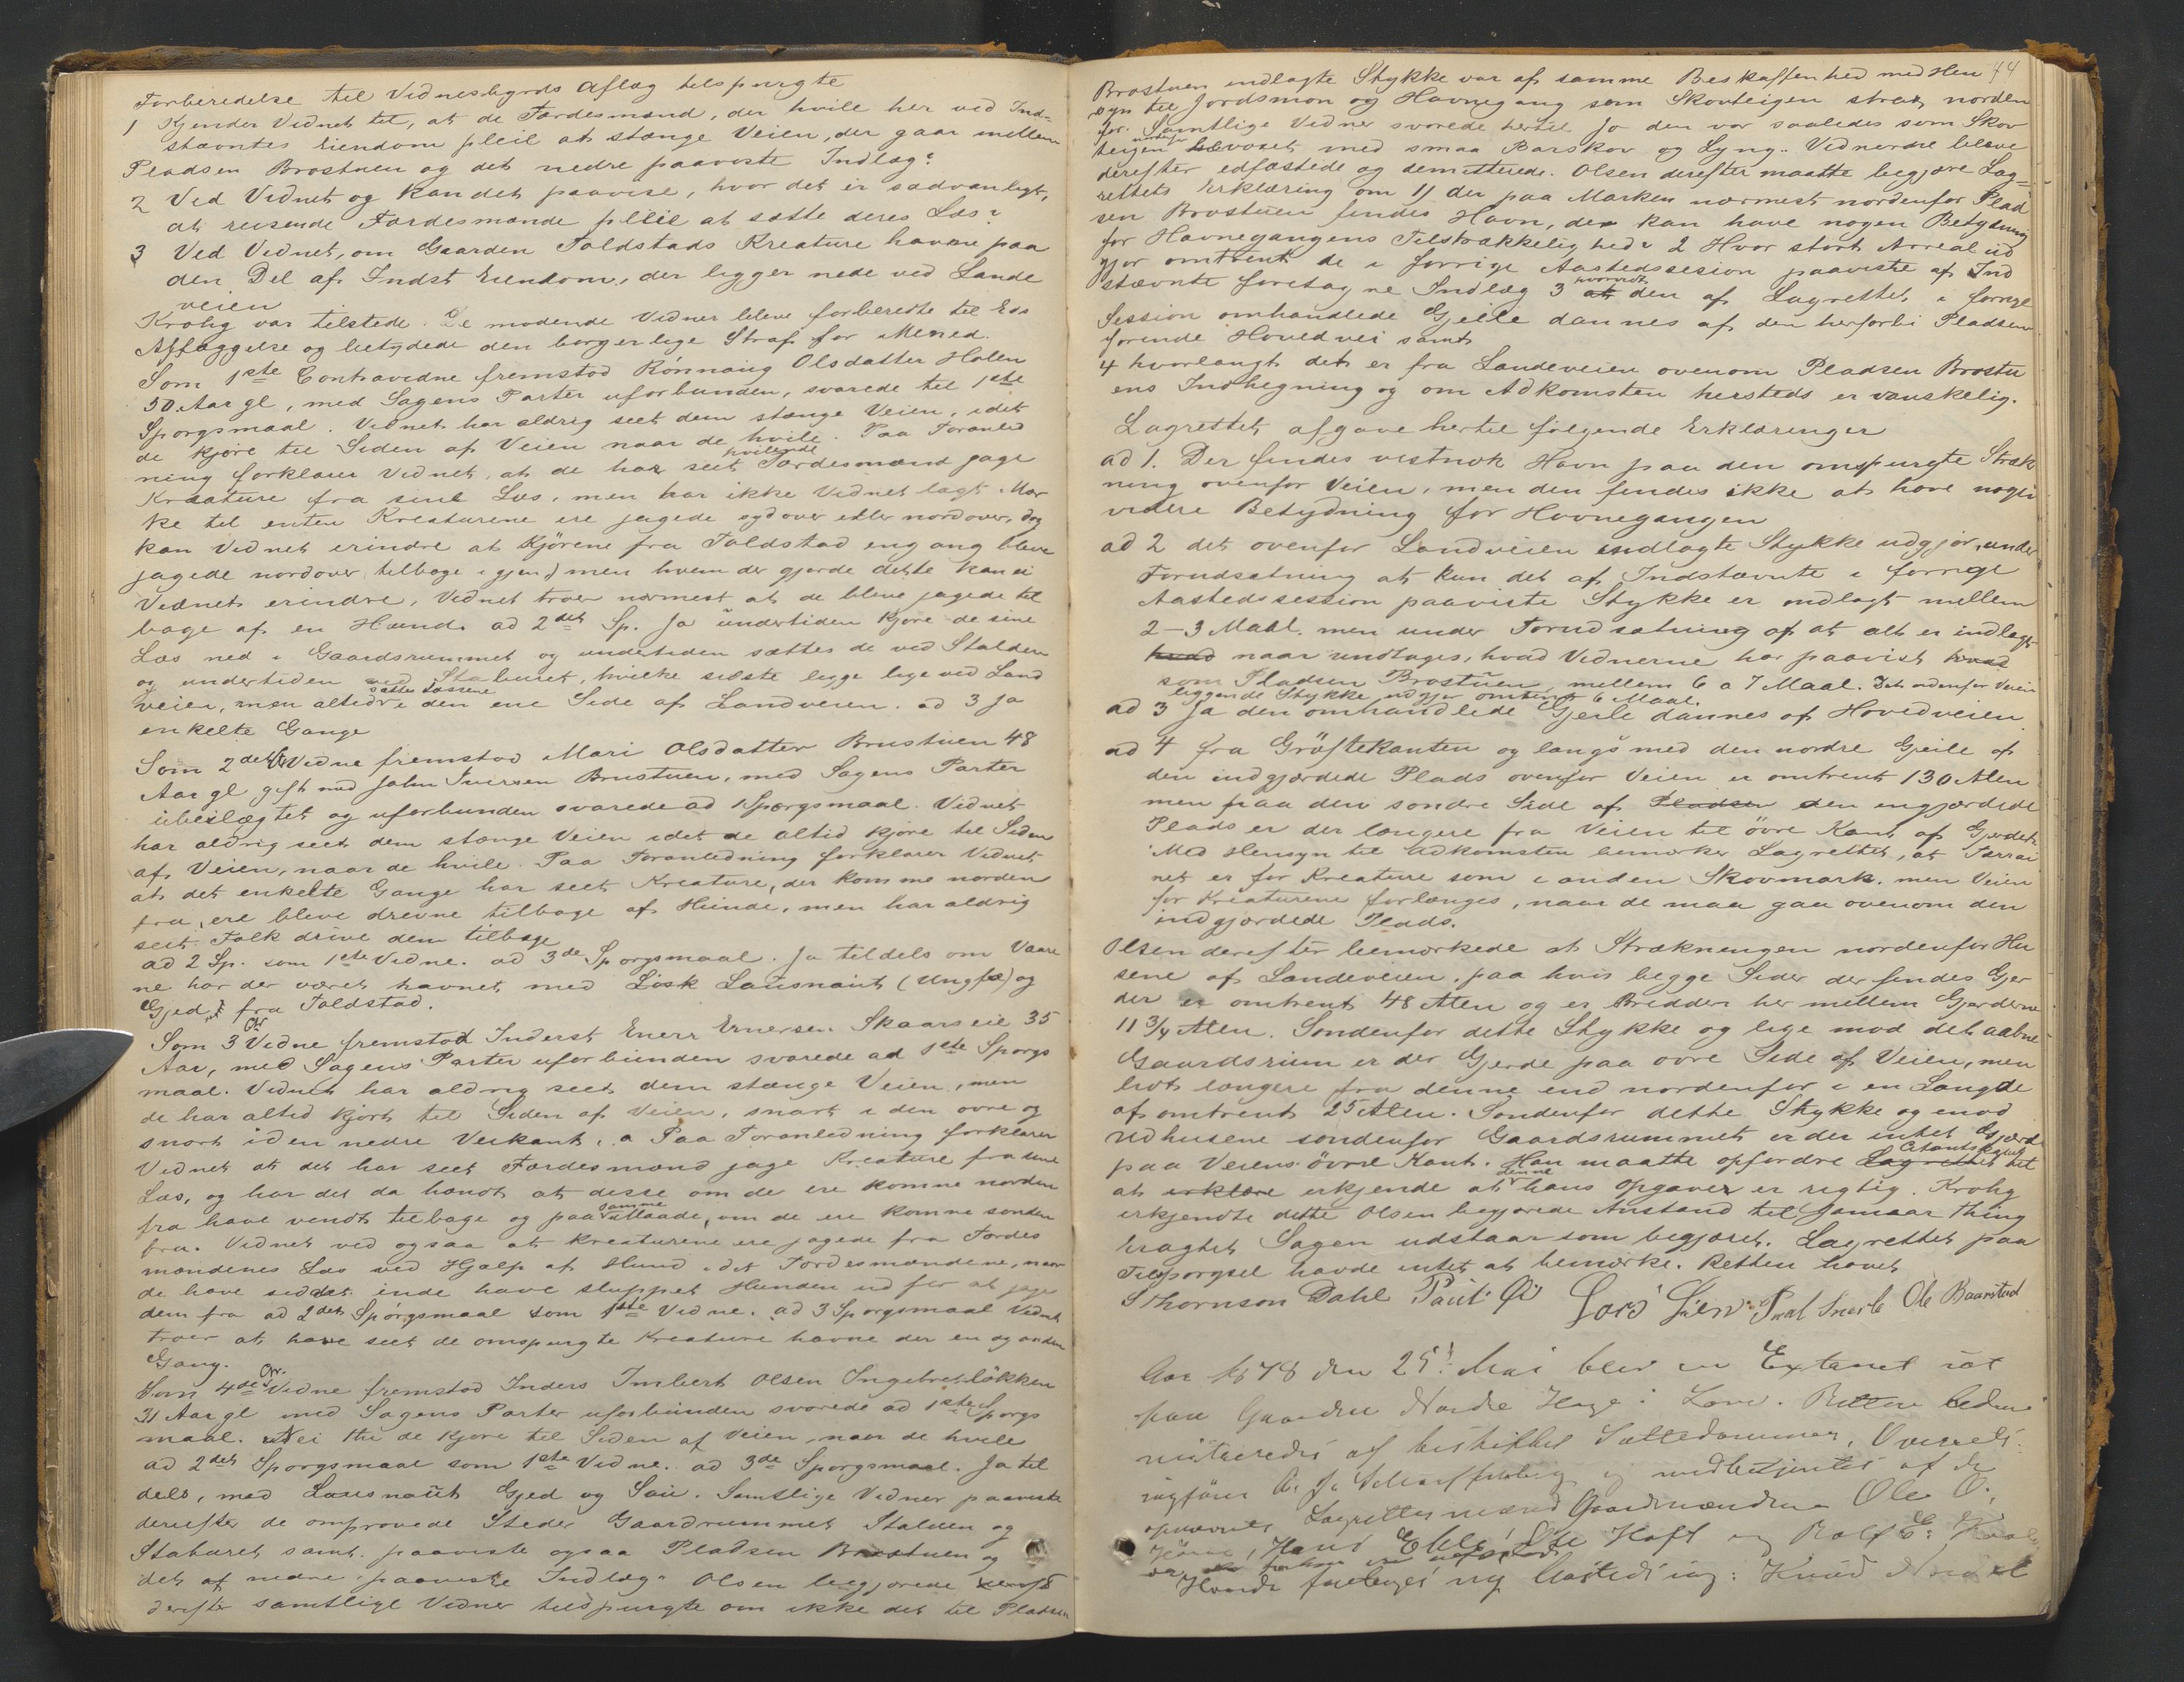 Forberedelse til Vidnesbyrds Aflæg tilspurgte
1 Kjender Vidnet til, at de Færdesmænd, der hvile her ved Ind-
stævntes Eiendom pleie at stænge Veien, der gaar mellem
Pladsen Brostuen og det nedre paaviste Indlæg?
2 Ved Vidnet og kan det paavise, hvor det er sædvanligt,
at reisende Færdesmænde pleie at sætte deres Læs?
3 Ved Vidnet, om Gaarden Toldstads Kreature havne paa
den Del af Indst Eiendom, der ligger nede ved Lande
veien
Krohg var tilstede. De mødende Vidner bleve forberedte til Eds
Aflæggelse og betydede den borgerlige Straf for Mened.
Som 1ste Contravidne fremstod Rönnaug Olsdatter Holen
50 Aar gl, med Sagens Parter uforbunden, svarede til 1ste
Spørgsmaal. Vidnet har aldrig seet dem stænge Veien, idet
de kjøre til Siden af Veien naar de hvile. Paa Foranled
ning forklarer Vidnet, at de har seet hvilende Færdesmænd jage
Kreature fra sine Læs, men har ikke Vidnet lagt Mær
ke til enten Kreaturene ere jagede sydover eller nordover, dog
kan Vidnet erindre at Kjørene fra Toldstad engang bleve
jagede nordover tilbage igjen, men hvem der gjorde dette kan ei
Vidnet erindre, Vidnet troer nærmest at de bleve jagede til
bage af en Hund. ad 2det Sp. Ja undertiden kjøre de sine
Læs ned i Gaardsrummet og undertiden sættes de ved Stalden
og undertiden ved Staburet, hvilke sidste ligge lige ved Land
veien, men altid sættes Læssene i den ene Side af Landveien. ad 3 Ja
enkelte Gange
Som 2det Vidne fremstod Mari Olsdatter Brustuen 48
Aar gl gift med John Iversen Brustuen, med Sagens Parter
ubeslægtet og uforbunden svarede ad 1 Spørgsmaal. Vidnet
har aldrig seet dem stænge Veien idet de altid kjøre til Siden
af Veien, naar de hvile. Paa Foranledning forklarer Vidnet
at det enkelte Gange har seet Kreature, der komme norden
fra, ere bleve drevne tilbage af Hunde, men har aldrig
seet Folk drive dem tilbage
ad 2 Sp. som 1ste Vidne. ad 3de Spørgsmaal. Ja tildels om Vaare
ne har der været havnet med Løsk Lausnaut (Ungfæ) og
Gjed fra Toldstad.
Som 3 Vidne fremstod Inderst Ener Enersen Skaarseie 35
Aar, med Sagens Parter uforbunden svarede ad 1ste Spørgs
maal. Vidnet har aldrig seet dem stænge Veien, men
de har altid kjørt til Siden af Veien, snart i den øvre og
snart i den nedre Veikant. Paa Foranledning forklarer
Vidnet at det har seet Færdesmænd jage Kreature fra sine
Læs, og har det da hændt at disse om de ere komne norden
fra have vendt tilbage og paa samme Maade, om de ere komne sønden
fra. Vidnet ved ogsaa at Kreaturene ere jagede fra Færdes
mændenes Læs ved Hjælp af Hund idet Færdesmændene, naar
de have siddet inde have sluppet Hunden ud for at jage
dem fra ad 2det Spørgsmaal som 1ste Vidne. ad 3 Spørgsmaal Vidnet
troer at have seet de omspurgte Kreature havne der en og anden
Gang.
Som 4de Vidne fremstod Inders Imbert Olsen Ingebretsløkken
31 Aar gl med Sagens Parter uforbunden svarede ad 1ste Spørgs
maal. Nei thi de kjøre til Siden af Veien, naar de hvile
ad 2det Spørgsmaal som 1ste Vidne. ad 3de Spørgsmaal. Ja til
dels, med Lausnaut Gjed og Sau. Samtlige Vidner paaviste
derefter de omprovede Steder Gaardrummet Stalden og
Staburet samt paaviste ogsaa Pladsen Brostuen og
det af nedre paaviste Indlæg. Olsen begjærede
derefter samtlige Vidner tilspurgte om ikke det til Pladsen
44
Brostuen indlagte Stykke var af samme Beskaffenhed med Hen
syn til Jordsmon og Havnegang som Skovteigen strax norden
for. Samtlige Vidner svarede hertil Ja den var saaledes som Skov
teigen bevoxet med smaa Barskov og Lyng. Vidnerne bleve
derefter edfæstede og demitterede. Olsen derefter maatte begjære Lag-
rettets Erklæring om 1) der paa Marken nærmest nordenfor Plad
sen Brostuen findes Havn, der kan have nogen Betydning
for Havnegangens Tilstrækkelighed? 2 Hvor stort Areal ud
gjør omtrent de i forrige Aastedssesion paaviste af Ind
stævnte foretagne Indlæg 3 hvorvidt den af Lagrettet i forrige
Session omhandlede Gjeile dannes af den herforbi Pladsen
førende Hovedvei samt
4 hvorlangt det er fra Landeveien ovenom Pladsen Brostu
ens Indhegning og om Adkomsten hersteds er vanskelig.
Lagrettet afgave hertil følgende Erklæringer
ad 1. Der findes vistnok Havn paa den omspurgte Stræk
ning ovenfor Veien, men den findes ikke at have nogen
videre Betydning for Havnegangen
ad 2 det ovenfor Landveien indlagte Stykke udgjør, under
Forudsætning at kun det af Indstævnte i forrige
Aastedssession paaviste Stykke er indlagt mellem
2-3 Maal. men under Forudsætning af at alt er indlagt
hvad naar undtages, hvad Vidnerne har paavist hvad
som Pladsen Brostuen mellem 6 a 7 Maal. Det nedenfor Veien
liggende Stykke udgjør omtrent 6 Maal.
ad 3 Ja den omhandlede Gjeile dannes af Hovedveien
ad 4 fra Grøftekanten og langs med den nordre Gjeile af
den indgjærdede Plads ovenfor Veien er omtrent 130 Alen
men paa den søndre Side af Pladsen den engjærdede
Plads er der længere fra Veien til øvre Kant af Gjerdet.
Med Hensyn til Adkomsten bemærker Lagrettet, at Terrai
net er for Kreature som i anden Skovmark, men Veien
for Kreaturene forlænges, naar de maa gaa ovenom den
indgjærdede Plads.
Olsen derefter bemærkede at Strækningen nordenfor Hu
sene af Landeveien, paa hvis begge Sider der findes Gjer
der er omtrent 48 Alen og er Bredden her mellem Gjerderne
11 3/4 Alen. Søndenfor dette Stykke og lige mod det aabne
Gaardsrum er der Gjerde paa øvre Side af Veien, men
lidt længere fra denne end nordenfor i en Længde
af omtrent 25 Alen. Søndenfor dette Stykke og mod
Udhusene søndenfor Gaardsrummet er der intet Gjærde
paa Veiens øvre Kant. Han maatte opfordre Citantskabet til
at erklære erkjende at denne hans Opgave er rigtig. Krohg
erkjendte dette Olsen begjærede Anstand til Januar Thing
bragtet Sagen udstaar som begjæret. Lagrettet paa
Tilspørgsel havde intet at bemærke. Retten hævet
SThornson Dahl Paul Øi Lars Lien Paal Snerle Ole Baarstad
Aar 1878 den 25. Mai blev en Extraret sat
paa Gaarden Nordre Hage i Lom. Retten admi
nistreredes af beskikket Sættedommer, Overrets
sagfører A. J. Scharffenberg og medbetjentes af de
opnævnte Lagrettesmænd Gaardmændene Ole O.
Hans Ekle, Ole Hoft og Rolf E.
Hvorda foretages ny Aastedssag: Knud